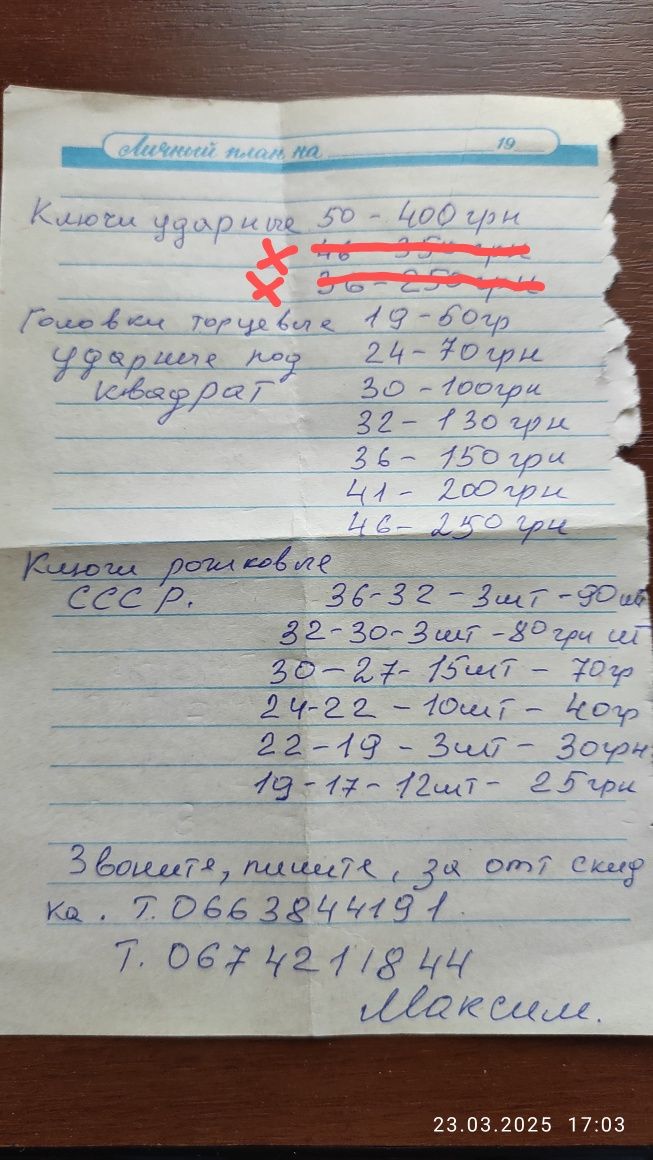 Личный план на 19
Ключи ударные 50 - 400 грн
46 - 350 грн
36 - 250 грн
Головки торцевые 19 - 60гр
ударные под 24 - 70 грн
квадрат 30 - 100грн
32 - 130 грн
36 - 150 грн
41 - 200 грн
46 - 250 грн
Ключи рожковые
СССР. 36-32 - 3шт - 90 шт
32-30-3шт - 80 грн шт
30-27-15шт - 70гр
24-22 - 10шт - 40гр
22-19 - 3шт - 30грн
19-17-12шт - 25 грн
Звоните, пишите, за опт скид
ка. Т. 0663844191.
Т. 0674211844
Максим.
23.03.2025 17:03